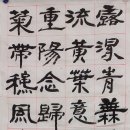 露濕青蕪
流黃葉意
重陽念歸
菊帶穐風